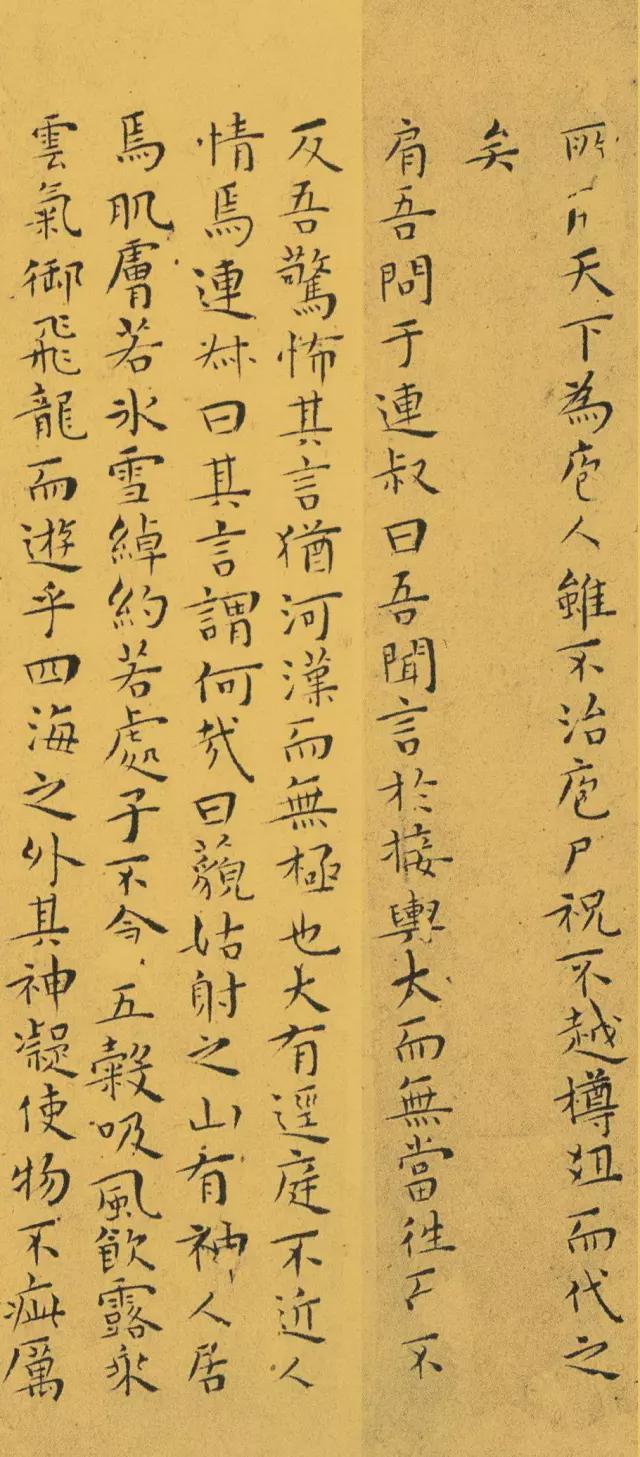 所天下為庖人雖不治庖尸祝不越樽俎而代之
矣
肩吾問于連叔曰吾聞言於接輿大而無當往不
反吾驚怖其言猶河漢而無極也大有逕庭不近人
情焉連叔曰其言謂何哉曰藐姑射之山有神人居
焉肌膚若氷雪綽約若處子不五穀吸風飲露乘
雲氣御飛龍而遊乎四海之外其神凝使物不疵厲